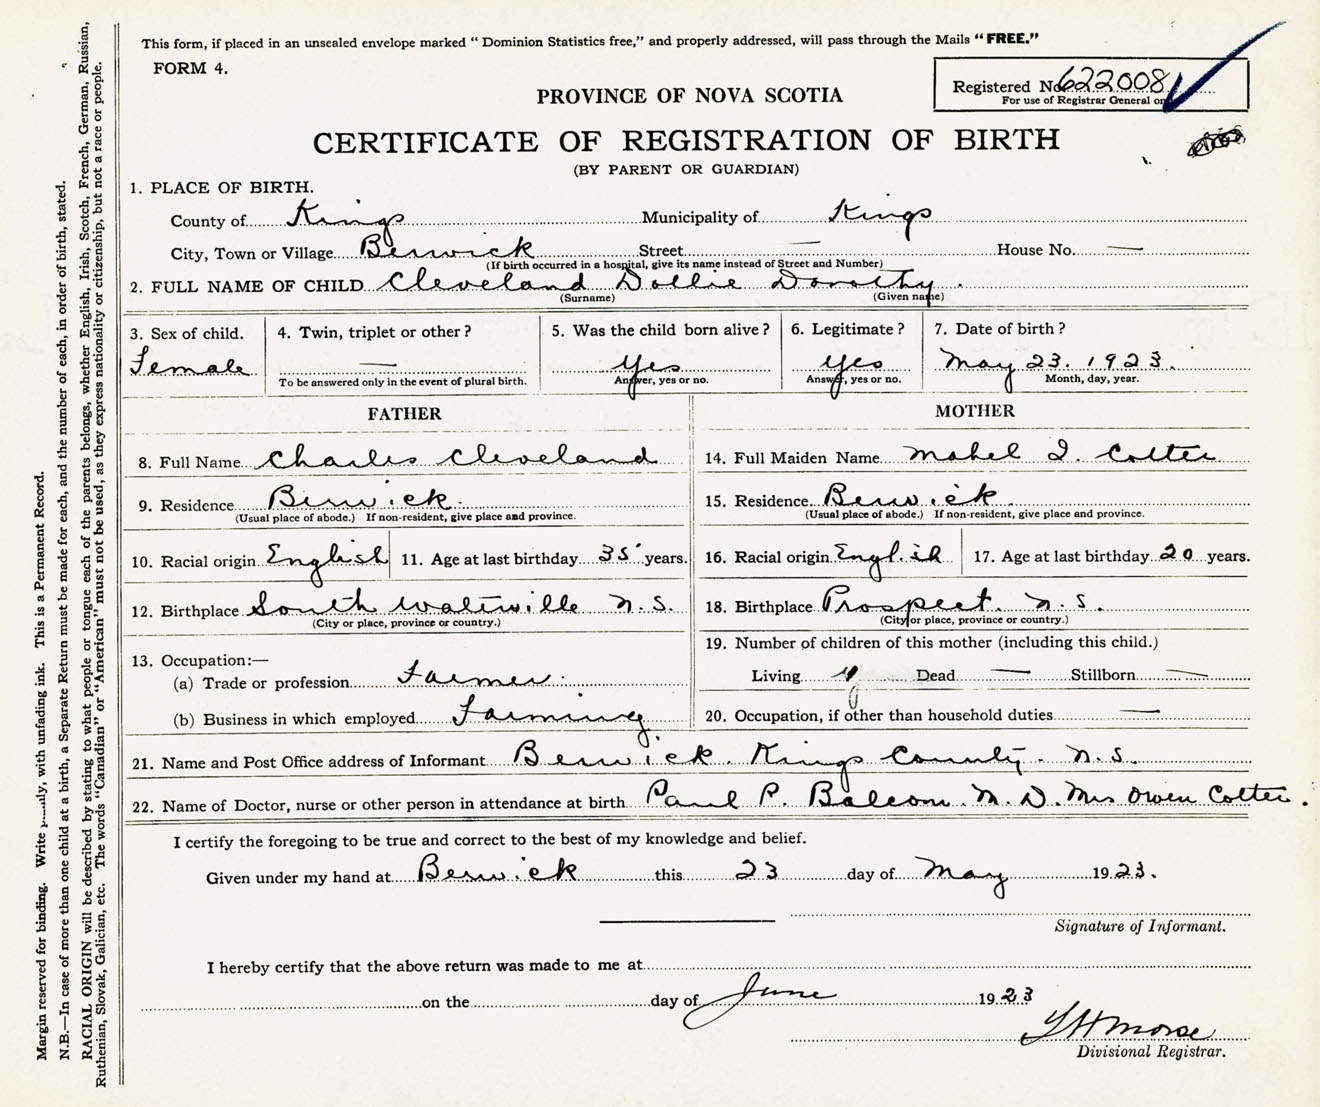 This form, if placed in an unsealed envelope marked “ Dominion Statistics free,” and properly addressed, will pass through the Mails “ FREE.”
FORM 4.
Registered No. 622008
For use of Registrar General on
PROVINCE OF NOVA SCOTIA
CERTIFICATE OF REGISTRATION OF BIRTH
(BY PARENT OR GUARDIAN)
1. PLACE OF BIRTH.
County of Kings Municipality of Kings
City, Town or Village Berwick Street — House No. —
(If birth occurred in a hospital, give its name instead of Street and Number)
2. FULL NAME OF CHILD Cleveland Dollie Dorothy.
(Surname) (Given name)
3. Sex of child. 4. Twin, triplet or other ? 5. Was the child born alive ? 6. Legitimate ? 7. Date of birth ?
Female — Yes Yes May 23. 1923.
To be answered only in the event of plural birth. Answer, yes or no. Answer, yes or no. Month, day, year.
FATHER MOTHER
8. Full Name Charles Cleveland 14. Full Maiden Name Mabel I. Cotter
9. Residence Berwick. 15. Residence Berwick
(Usual place of abode.) If non-resident, give place and province. (Usual place of abode.) If non-resident, give place and province.
10. Racial origin English 11. Age at last birthday 35 years. 16. Racial origin English 17. Age at last birthday 20 years.
12. Birthplace South Waterville N.S. 18. Birthplace Prospect. N.S.
(City or place, province or country.) (City or place, province or country.)
19. Number of children of this mother (including this child.)
13. Occupation:—
(a) Trade or profession Farmer. Living Dead — Stillborn —
(b) Business in which employed Farming 20. Occupation, if other than household duties —
21. Name and Post Office address of Informant Berwick. Kings County. N.S.
22. Name of Doctor, nurse or other person in attendance at birth Paul P. Balcom M.D. Mrs Owen Cotter.
I certify the foregoing to be true and correct to the best of my knowledge and belief.
Given under my hand at Berwick this 23 day of May 1923.
Signature of Informant.
I hereby certify that the above return was made to me at
on the day of June 1923
L H Morse
Divisional Registrar.
Margin reserved for binding. Write with unfading ink. This is a Permanent Record.
N.B.—In case of more than one child at a birth, a Separate Return must be made for each, and the number of each, in order of birth, stated.
RACIAL ORIGIN will be described by stating to what people or tongue each of the parents belongs, whether English, Irish, Scotch, French, German, Russian,
Ruthenian, Slovak, Galician, etc. The words “Canadian” or “American” must not be used, as they express nationality or citizenship, but not a race or people.